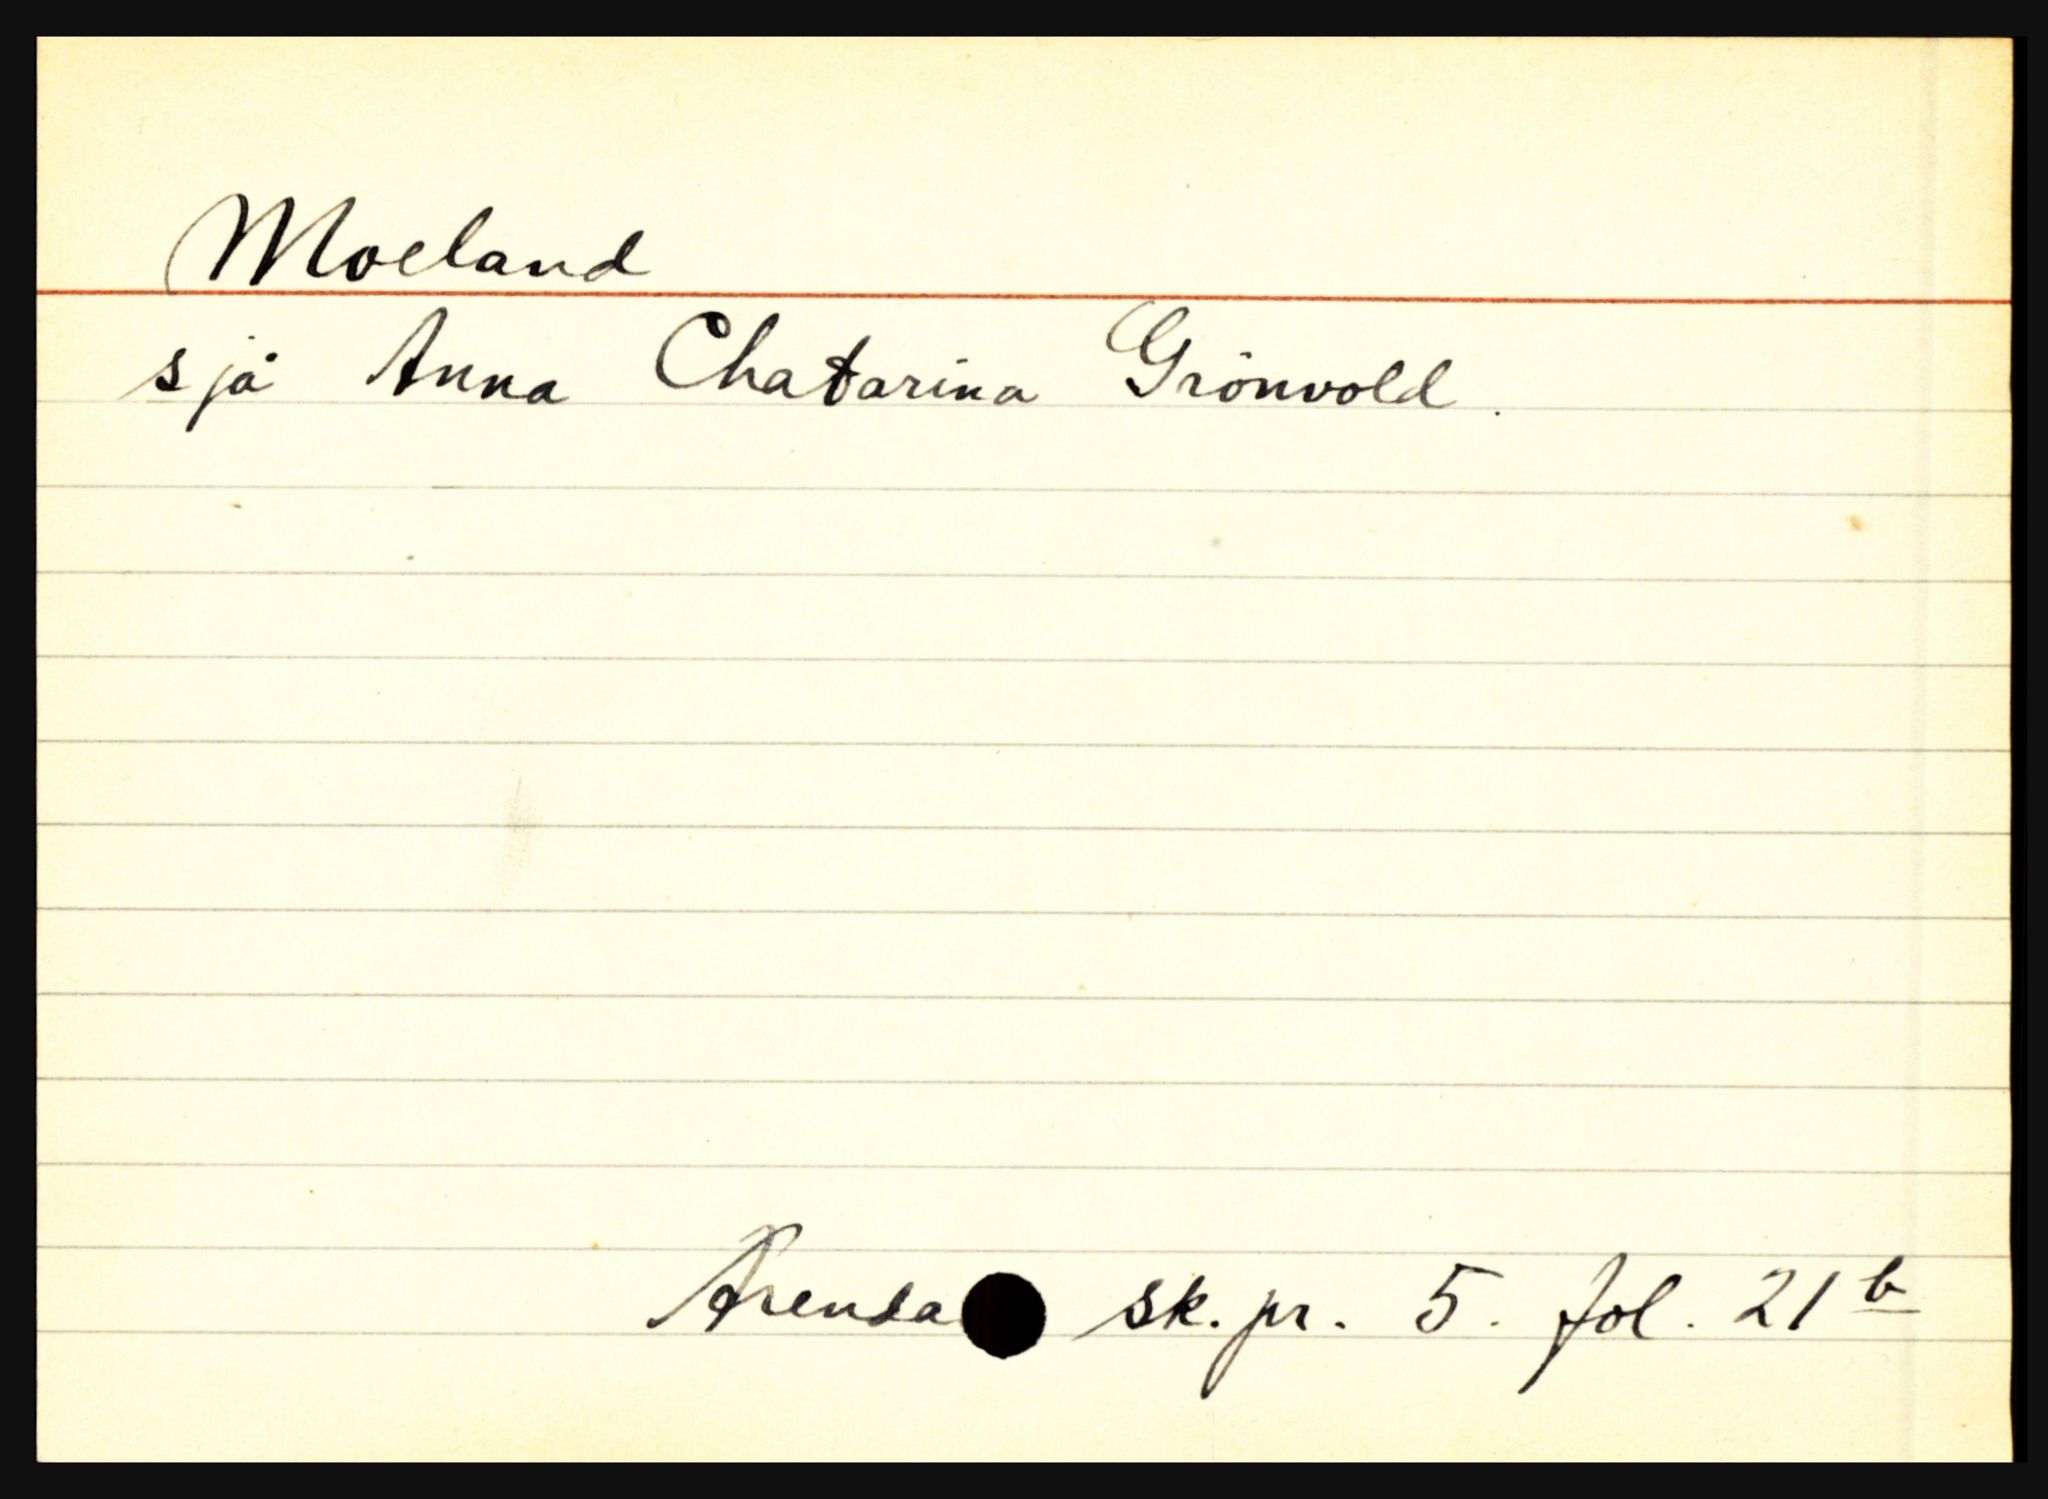 Moeland
sjå Anna Chatarina Grönvold.
Arenda sk. pr. 5. fol. 21 b